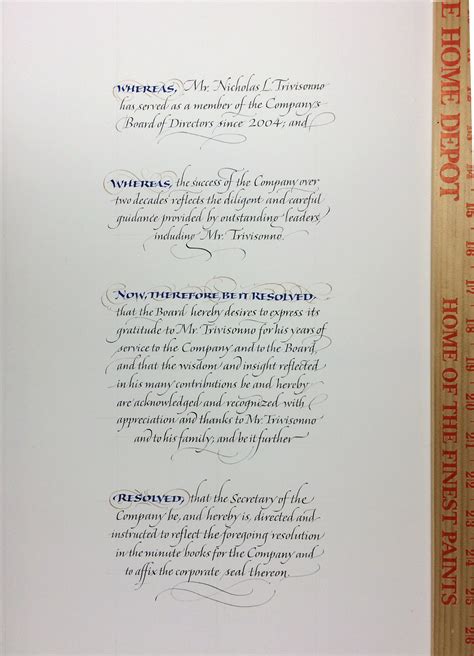 WHEREAS, Mr. Nicholas L. Trivisonno
has served as a member of the Company's
Board of Directors since 2004; and
WHEREAS, the success of the Company over
two decades reflects the diligent and careful
guidance provided by outstanding leaders,
including Mr. Trivisonno.
NOW, THEREFORE, BE IT RESOLVED,
that the Board hereby desires to express its
gratitude to Mr. Trivisonno for his years of
service to the Company and to the Board,
and that the wisdom and insight reflected
in his many contributions be and hereby
are acknowledged and recognized with
appreciation and thanks to Mr. Trivisonno
and to his family; and be it further—
RESOLVED, that the Secretary of the
Company be, and hereby is, directed and
instructed to reflect the foregoing resolution
in the minute books for the Company and
to affix the corporate seal thereon.
E HOME DEPOT
HOME OF THE FINEST PAINTS
15
16
17
18
19
20
21
22
23
24
25
26